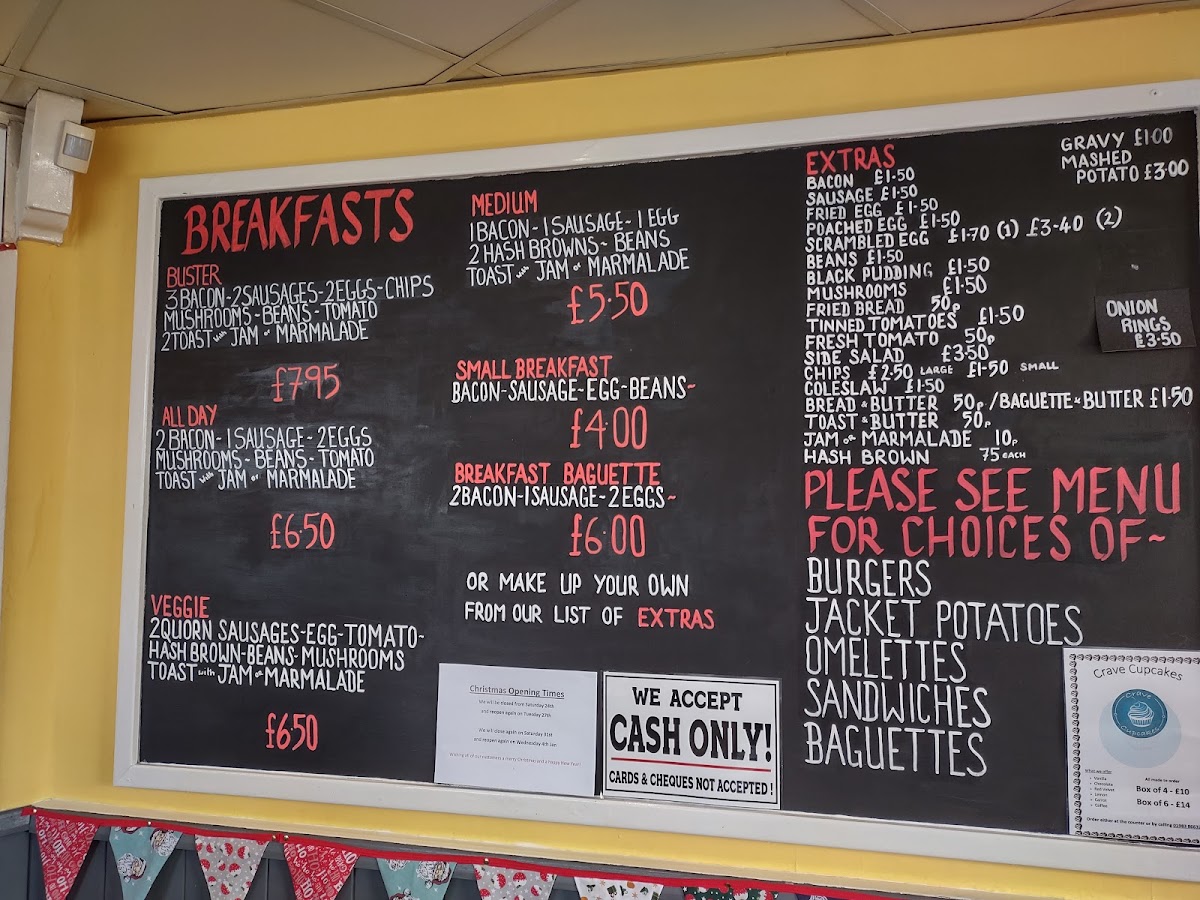 BREAKFASTS
BUSTER
3 BACON-2 SAUSAGES-2 EGGS-CHIPS
MUSHROOMS-BEANS-TOMATO
2 TOAST with JAM or MARMALADE
£7.95
ALL DAY
2 BACON-1 SAUSAGE-2 EGGS
MUSHROOMS-BEANS-TOMATO
TOAST with JAM or MARMALADE
£6.50
VEGGIE
2 QUORN SAUSAGES-EGG-TOMATO-
HASH BROWN-BEANS-MUSHROOMS
TOAST with JAM or MARMALADE
£6.50
MEDIUM
1 BACON-1 SAUSAGE-1 EGG
2 HASH BROWNS-BEANS
TOAST with JAM or MARMALADE
£5.50
SMALL BREAKFAST
BACON-SAUSAGE-EGG-BEANS~
£4.00
BREAKFAST BAGUETTE
2 BACON-1 SAUSAGE-2 EGGS~
£6.00
OR MAKE UP YOUR OWN
FROM OUR LIST OF EXTRAS
Christmas Opening Times
We will be closed from Saturday 24th
and reopen again on Tuesday 27th
We will close again on Saturday 31st
and reopen again on Wednesday 4th Jan
Wishing all of our customers a merry Christmas and a happy New Year!
WE ACCEPT
CASH ONLY!
CARDS & CHEQUES NOT ACCEPTED!
EXTRAS
BACON £1.50
SAUSAGE £1.50
FRIED EGG £1.50
POACHED EGG £1.50
SCRAMBLED EGG £1.70 (1) £3-40 (2)
BEANS £1.50
BLACK PUDDING £1.50
MUSHROOMS £1.50
FRIED BREAD 50p
TINNED TOMATOES £1.50
FRESH TOMATO 50p
SIDE SALAD £3.50
CHIPS £2.50 LARGE £1.50 SMALL
COLESLAW £1.50
BREAD & BUTTER 50p / BAGUETTE & BUTTER £1.50
TOAST & BUTTER 50p
JAM or MARMALADE 10p
HASH BROWN 75 EACH
GRAVY £1.00
MASHED
POTATO £3.00
ONION
RINGS
£3.50
PLEASE SEE MENU
FOR CHOICES OF~
BURGERS
JACKET POTATOES
OMELETTES
SANDWICHES
BAGUETTES
Crave Cupcakes
Crave
CUPCAKES
What we offer
Vanilla
Chocolate
Red Velvet
Lemon
Carrot
Coffee
All made to order
Box of 4 - £10
Box of 6 - £14
Order either at the counter or by calling